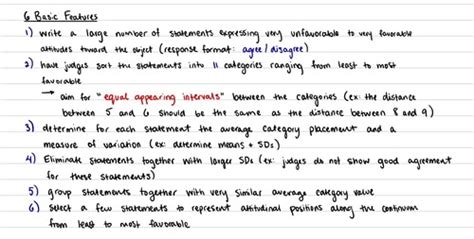 6 Basic Features
1) write a large number of statements expressing very unfavorable to very favorable
attitudes toward the object (response format: agree / disagree)
2) have judges sort the statements into 11 categories ranging from least to most
favorable
→ aim for "equal appearing intervals" between the categories (ex: the distance
between 5 and 6 should be the same as the distance between 8 and 9)
3) determine for each statement the average category placement and a
measure of variation (ex: determine means + SDs)
4) Eliminate statements together with larger SDs (ex: judges do not show good agreement
for these statements)
5) group statements together with very similar average category value
6) Select a few statements to represent attitudinal positions along the continuum
from least to most favorable